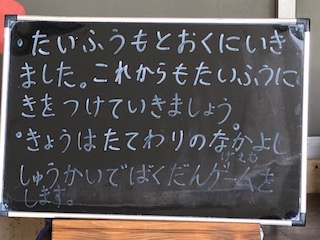 ・たいふうもとおくにいき
ました。これからもたいふうに
きをつけていきましょう。
・きょうはたてわりのなかよし
しゅうかいでばくだんゲームを
します。